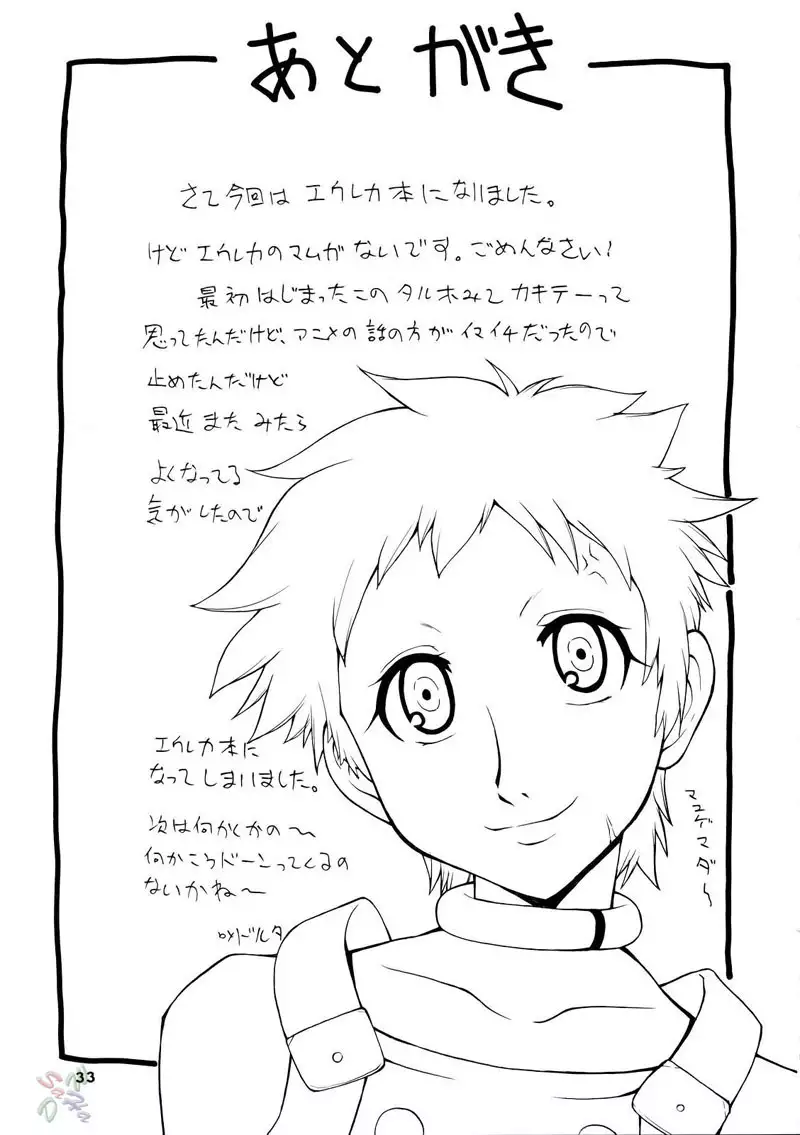 あとがき
さて今回は エウレカ本になりました。
けど エウレカのマムがないです。ごめんなさい!
最初 はじまったこの タルホみて カキテーって
思ってたんだけど、アニメの話の方が イマイチだったので
止めたんだけど
最近 また みたら
よくなってる
気がしたので
エウレカ本に
なってしまいました。
次は何かくかの〜
何かころドーンってくるの
ないかね〜
マユゲマダ〜
33